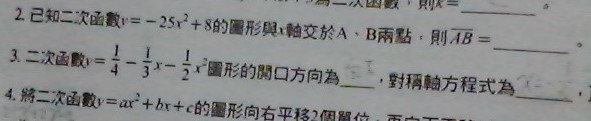 二次函數，則k=______。
2. 已知二次函數y=−25x²+8的圖形與x軸交於A、B兩點，則AB=______。
3. 二次函數y=1/4−1/3x−1/2x²圖形的開口方向為____，對稱軸方程式為______，
4. 將二次函數y=ax²+bx+c的圖形向右平移2個單位，再向下